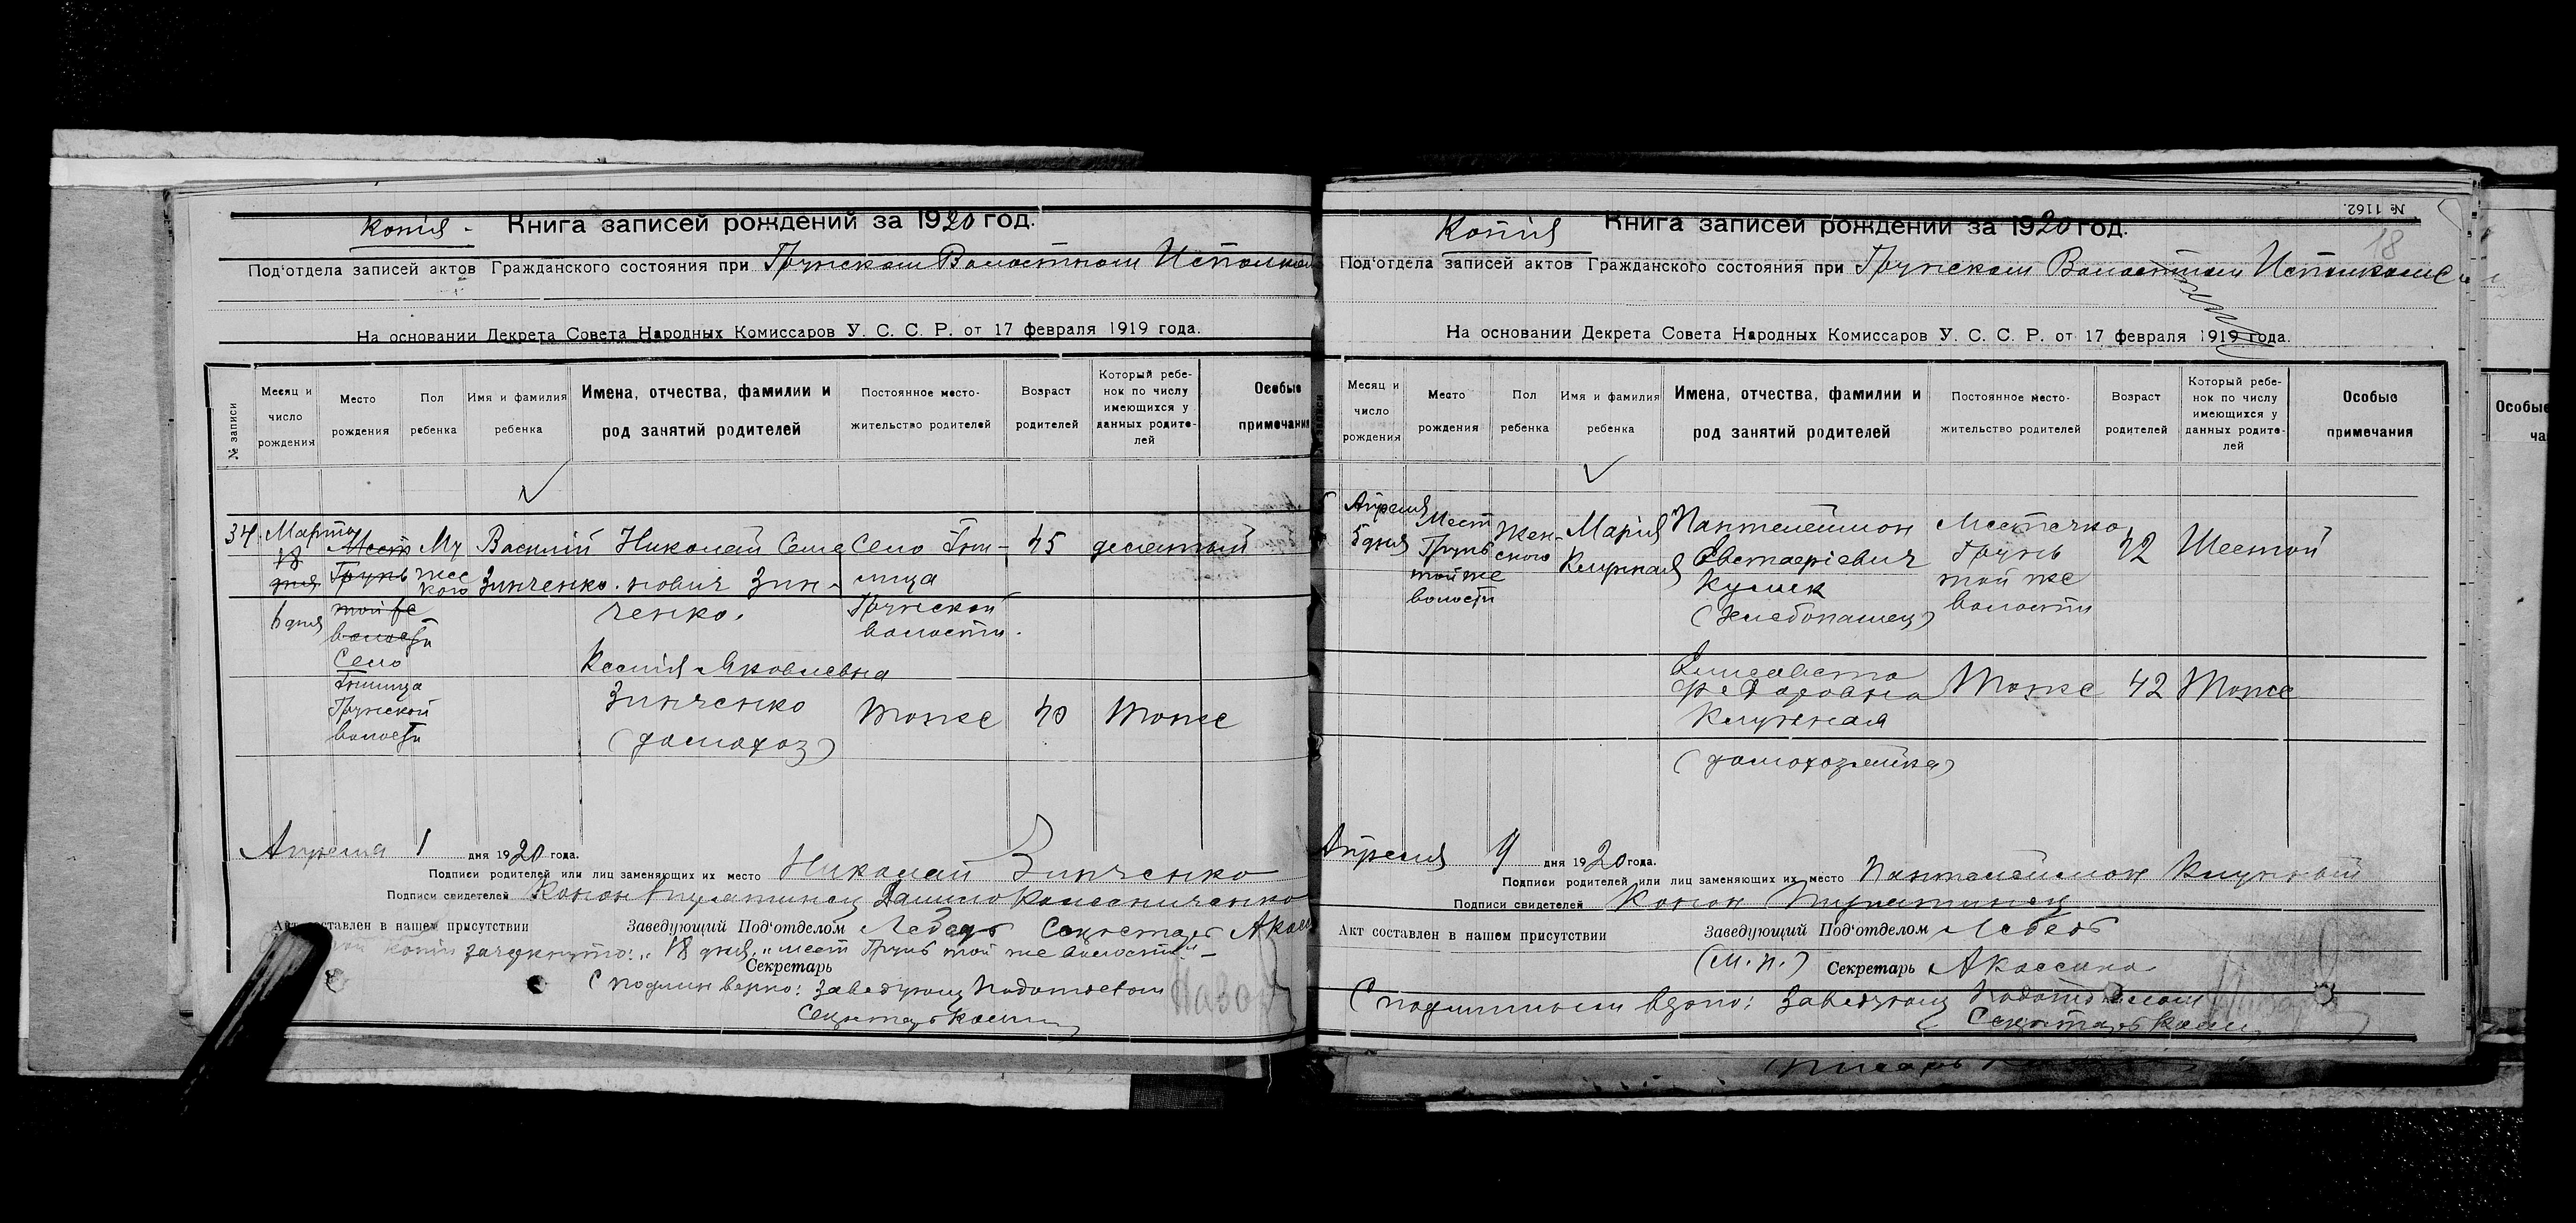 Копія - Книга записей рождений за 1920 год.
Под'отдела записей актов Гражданского состояния при Грунском Волостном Исполком
На основании Декрета Совета Народных Комиссаров У. С. С. Р. от 17 февраля 1919 года.
№ записи
Месяц и число рождения
Место рождения
Пол ребенка
Имя и фамилия ребенка
Имена, отчества, фамилии и род занятий родителей
Постоянное место-жительство родителей
Возраст родителей
Который ребе-нок по числу имеющихся у данных родите-лей
Особые примечания
34
Марта
18
дня
6 дня
Мест
Грунь
той же
волости
Село
Грунской
волости
Му
жес
кого
Василій
Зинченко.
Николай Семе
нович Зин-
ченко.
Село
Грунской
волости.
45
десятый
Ксенія Яковлевна
Зинченко
(домохоз)
тоже
40
тоже
Апреля 1 дня 1920 года.
Подписи родителей или лиц заменяющих их место Николай Зинченко
Подписи свидетелей Конон Пирятинец Данило Колесниченко
Акт составлен в нашем присутствии Заведующий Под'отделом Лебедь Секретарь
копіи зачеркнуто: „18 дня", „мест Грунь той же волости" -
Секретарь
С подлин верно: Заведующ Подотделом
Секретарь
Копія Книга записей рождений за 1920 год.
№ 1162.
18
Под'отдела записей актов Гражданского состояния при Грунском Волостном Исполкоме
На основании Декрета Совета Народных Комиссаров У. С. С. Р. от 17 февраля 1919 года.
Месяц и число рождения
Место рождения
Пол ребенка
Имя и фамилия ребенка
Имена, отчества, фамилии и род занятий родителей
Постоянное место-жительство родителей
Возраст родителей
Который ребе-нок по числу имеющихся у данных родите-лей
Особые примечания
Особые
ча
Апреля
5 дня
Мест
Грунь
той же
волости
Жен-
ского
Марія
Пантелеймон
Евстафіевич
(хлебопашец)
Местечко
Грунь
той же
волости
42
Шестой
Елисавета
Федоровна
(домохозяйка)
Тоже
42
Тоже
Апреля 9 дня 1920 года.
Подписи родителей или лиц заменяющих их место Пантелеймон
Подписи свидетелей Конон Пирятинец
Акт составлен в нашем присутствии Заведующий Под'отделом Лебедь
(М. п.) Секретарь
С подлинным верно: Заведующ Подотделом
Секретарь